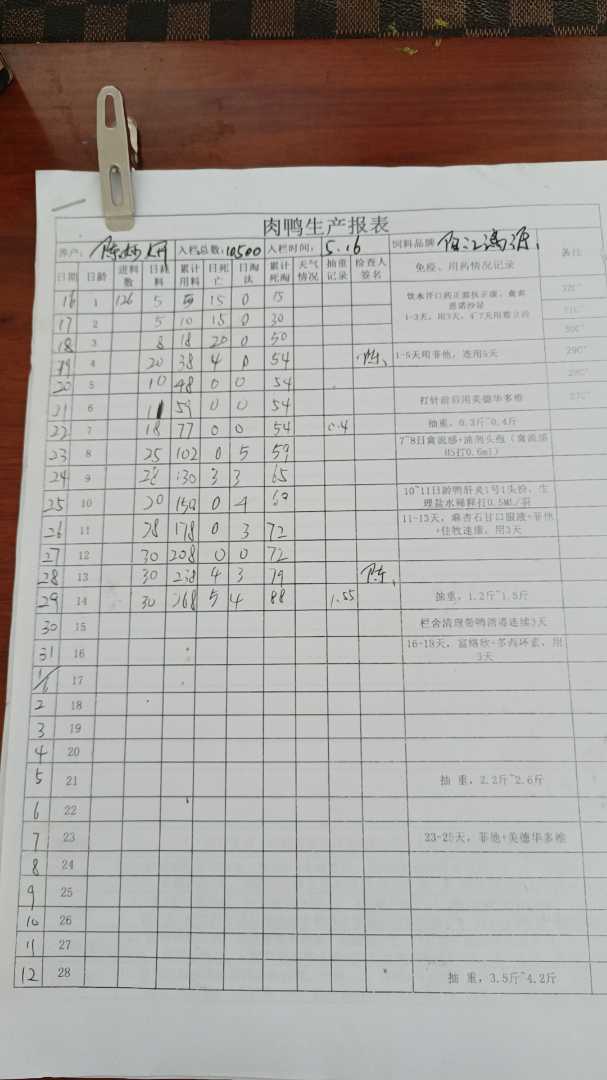 肉鸭生产报表
客户: 陈 入栏总数: 10500 入栏时间: 5.16 饲料品牌 阳江漓源 备注
日期 日龄 进料数 日耗料 累计用料 日死亡 日淘汰 累计死淘 天气情况 抽重记录 检查人签名 免疫、用药情况记录
16 1 126 5 5 15 0 15 饮水开口药 32C°
17 2 5 10 15 0 30 1-3天,用3天,4-7天用
18 3 8 18 20 0 50 30C°
19 4 20 38 4 0 54 陈 1-5天用菲他,连用5天 29C°
20 5 10 48 0 0 54
21 6 11 59 0 0 54 打针前后用美德华多维 27C°
22 7 18 77 0 0 54 0.4 抽重,0.3斤~0.4斤
23 8 25 102 0 5 59 7~8日禽流感+油剂头孢(禽流感H5打0.6ml)
24 9 28 130 3 3 65
25 10 20 150 0 4 69 10~11日龄鸭肝炎1号1头份,生理盐水稀释打0.5ML/羽
26 11 28 178 0 3 72 11-13天,麻杏石甘口服液+菲他+佳牧速康,用3天
27 12 30 208 0 0 72
28 13 30 238 4 3 79 陈
29 14 30 268 5 4 88 1.55 抽重,1.2斤~1.5斤
30 15 栏舍清理带鸭消毒连续3天
31 16 16-18天,富络欣+多西环素,用3天
1/6 17
2 18
3 19
4 20
5 21 抽 重,2.2斤~2.6斤
6 22
7 23 23-25天,菲他+美德华多维
8 24
9 25
10 26
11 27
12 28 抽 重,3.5斤~4.2斤